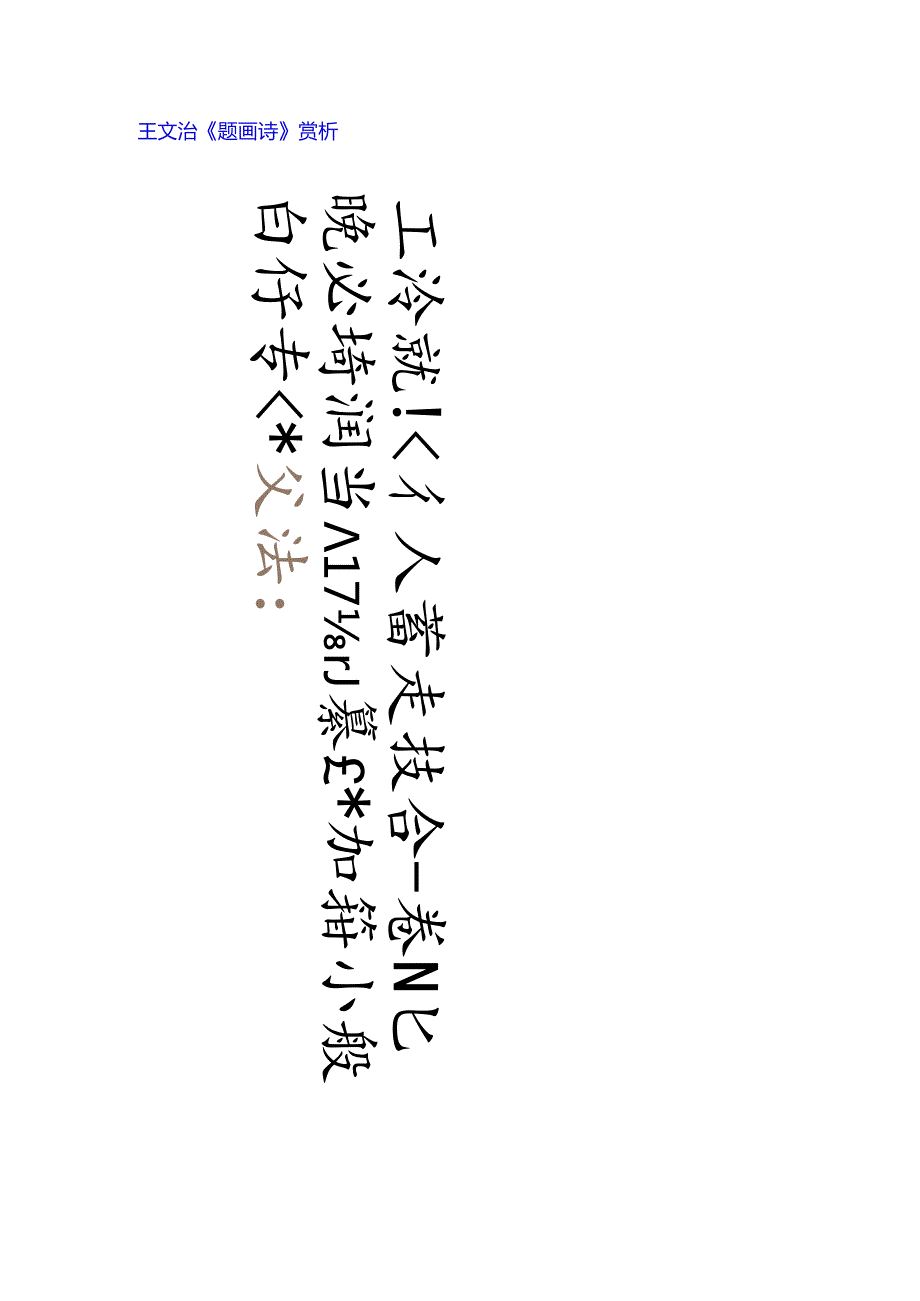 王文治《题画诗》赏析
工泠就!<彳人蓄走技合-卷N匕
晩必埼润当Λ17⅛rJ纂£*加箝小般
白仔去<*父法: